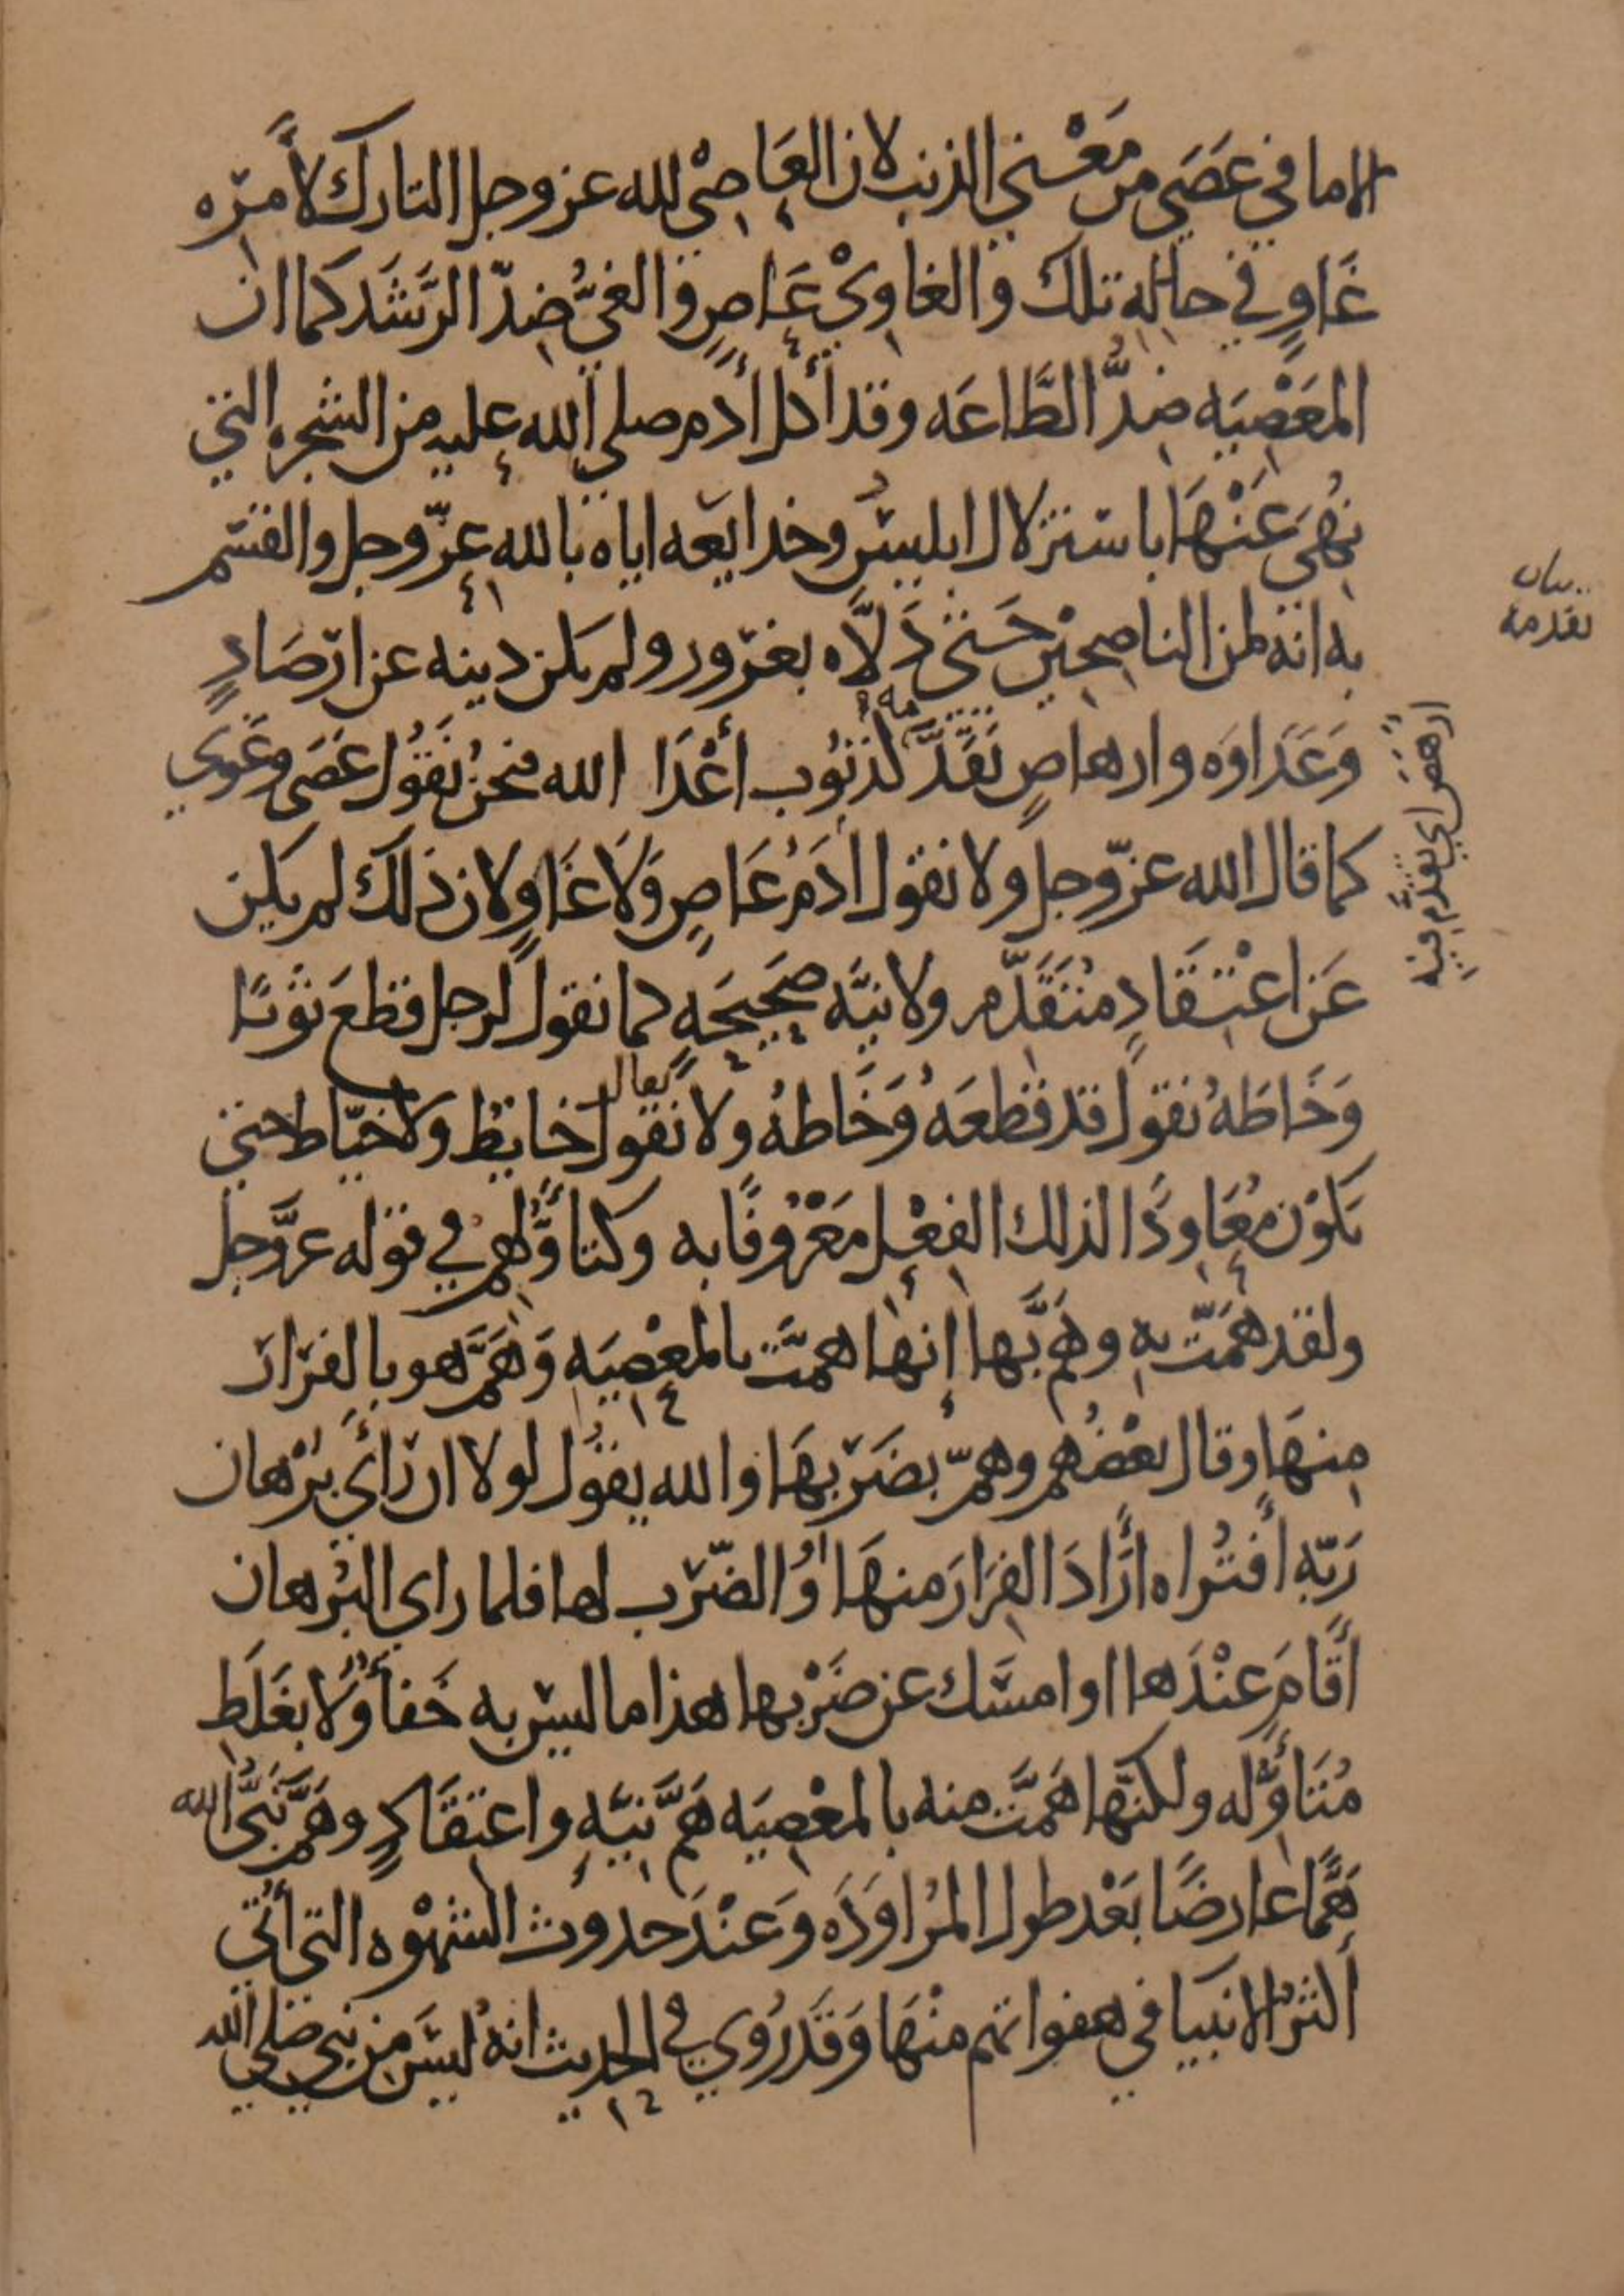 الاما في عَصَى من مَعْنى الذنب لان العَاصْي لله عز وجل التارك لأمره
غَاوٍ في حاله تلك والغاوِيْ عَاصٍ والغيُّ ضدّ الرَشَد كما ان
المعَصْيَه ضِدُّ الطَّاعَه وقد أكل أدم صلى الله عليه من الشجره التي
نُهيَ عَنْهَا باستنزلال ابليسُ وخدايعه اياه بالله عزّ وجل والقسم
به انه لمن الناصحِيْن حَتى دَلَّاه بغرور ولم يكن دينه عن ارصَادٍ
وَعَدَاوَه وارهاصٍ نَقَدَّمه لذنُوب أعْدَا الله فنحنُ نَقُول عَصَى وغَوَى
كما قال الله عزّ وجل ولا نقول ادَمُ عَاصٍ وَلَا غَاوٍ لان ذلك لم يكن
عَن اعْتقَادٍ مُتَقَدّم ولا نيَّه صَحِيحَهٍ كما نقول لرجل قطعَ ثوبًا
وَخَاطَهُ نقول قد قطعَهُ وَخَاطهُ ولا نقول يقال خايط ولا خيّاط حتى
يكوْن مُعَاودًا لذلك الفِعْل مَعْرُوفًا به وكتأوُّلهم في قوله عزَّ وجل
ولقد هَمَّت به وهمَّ بها إنها همَّت بالمعْصِيَه وَهَمَّ هو بالفرار
مِنهَا وقال بعْضُهم وهمّ بضَرْبهَا والله يقُول لولا ان رَأى بُرْهان
رَبّهِ أفتُراه أرَادَ الفِرَارَ منهَا أوُ الضّرْب لها فلما راى البُرهان
أقَامَ عنْدَها او امسَك عن ضَرْبها هذا ما ليس به خَفأ وَلا بغَلَط
مُتَأوّله ولكنّها هَمَّت منه بالمعْصِيَه هَمَّ نيَّهٍ واعتقَادٍ وهَمَّ نَبيُّ الله
هَمًّا عارضًا بَعْد طول المُراوَدَه وَعَنْدَ حدوث الشهْوه التى أتي
أكثرُ الانبيا في هفواتهم منْهَا وَقَد رُوي في الحديث انهُ ليسَ من نبي صَلى الله
بيان
تقدمة
ارهَصَ اي تقدَّم فيه